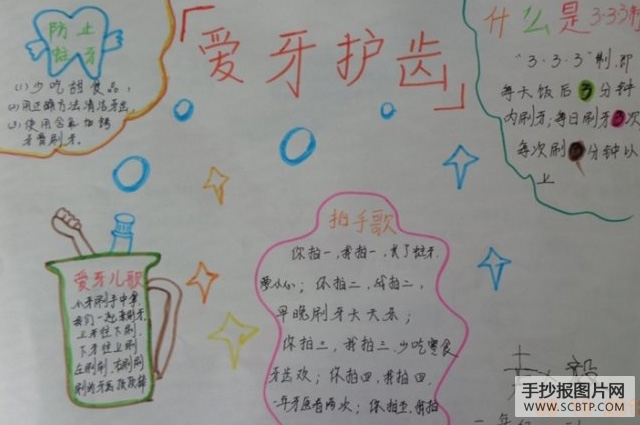 防止
蛀牙
(1)少吃甜食品,
(2)用正确方法清洁牙齿,
(3)使用含氟
牙膏刷牙.
「爱牙护齿」
什么是3·3·3制
"3·3·3"制,即
每天饭后3分钟
内刷牙;每日刷牙3次
每次刷3分钟以
上
爱牙儿歌
小牙刷手中拿,
我们一起来刷牙.
上牙往下刷,
下牙往上刷
左刷刷,右刷刷
拍手歌
你拍一,我拍一,
小心;你拍二,我拍二,
早晚刷牙天天乐;
你拍三,我拍三,少吃零食
牙齿欢;你拍四,我拍四,
一年牙医看两次;你拍五,我拍
手抄报图片网
WWW.SCBTP.COM